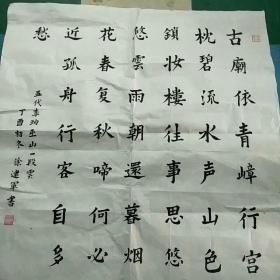 古廟依青嶂行宫
枕碧流水声山色
鎖妆樓往事思悠
悠雲雨朝還暮烟
花春复秋啼何必
近孤舟行客自多
愁
五代李珣巫山一段雲
丁酉初冬 徐建軍書